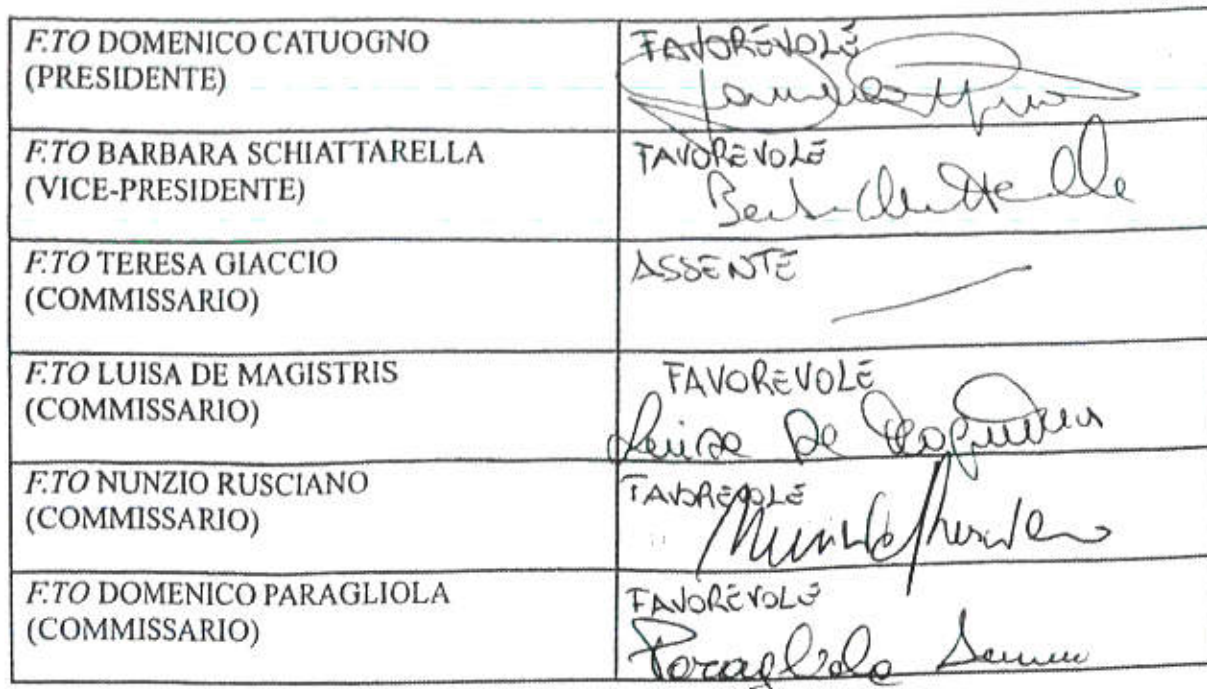 F.TO DOMENICO CATUOGNO
(PRESIDENTE)
FAVOREVOLE
F.TO BARBARA SCHIATTARELLA
(VICE-PRESIDENTE)
FAVOREVOLE
F.TO TERESA GIACCIO
(COMMISSARIO)
ASSENTE
F.TO LUISA DE MAGISTRIS
(COMMISSARIO)
FAVOREVOLE
Luisa De Magistris
F.TO NUNZIO RUSCIANO
(COMMISSARIO)
FAVOREVOLE
F.TO DOMENICO PARAGLIOLA
(COMMISSARIO)
FAVOREVOLE
Paragliola